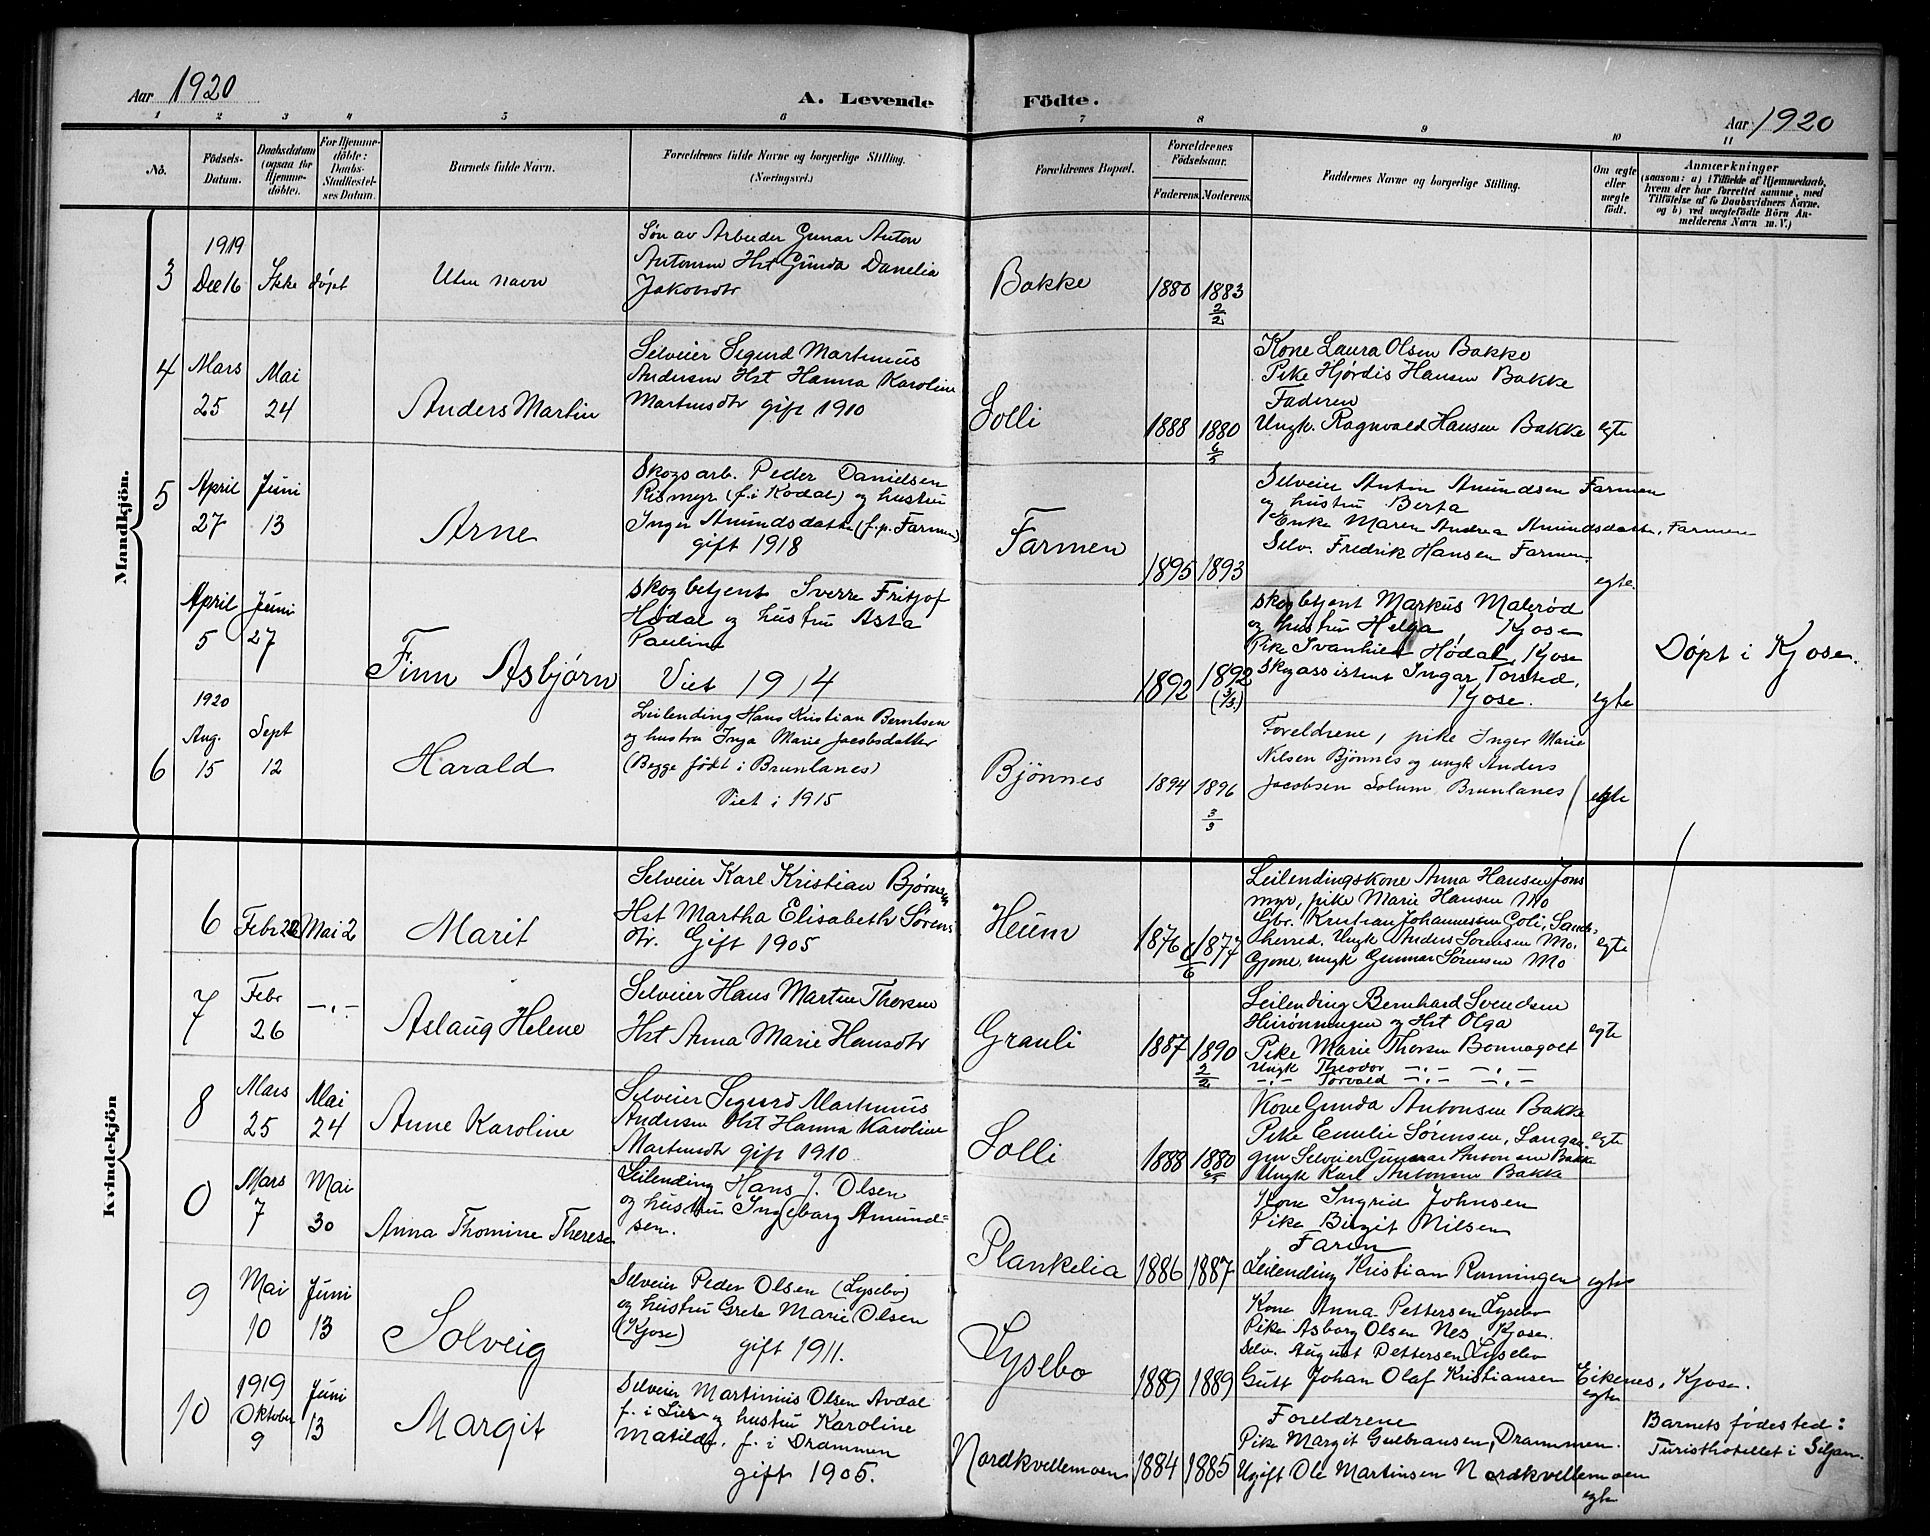 Aar 1920
A. Levende
Födte.
Aar 1920
1 2 3 4 5 6 7 8 9 10 11
No.
Födsels-
Datum.
Daabsdatum
(ogsaa for
Hjemme-
döbte).
For Hjemme-
döbte:
Daabs-
Stadfæstel-
ses Datum.
Barnets fulde Navn.
Forældrenes fulde Navne og borgerlige Stilling.
(Næringsvei.)
Forældrenes Bopæl.
Forældrenes
Födselsaar.
Faderens.
Moderens.
Faddernes Navne og borgerlige Stilling.
Om ægte
eller
uægte
födt.
Anmærkninger
(saasom: a) i Tilfælde af Hjemmedaab,
hvem der har forrettet samme, med
Tilföielse af to Daabsvidners Navne.
og b) ved uægtefödte Börn An-
melderens Navn m. V.)
Mandkjön.
3
1919
Dec 16
Ikke døpt
Uten navn
Søn av Arbeider Gunar Anton
Antonsen Hst Gunda Danelia
Jakobsdtr
Bakke
1880
1883
2/2
4
Mars
25
Mai
24
Anders Martin
Selveier Sigurd Martinius
Andersen Hst Hanna Karoline
Martinsdtr gift 1910
Solli
1888
1880
6/5
Kone Laura Olsen Bakke
Pike Hjørdis Hansen Bakke
Faderen
Ungk. Ragnvald Hansen Bakke
egte
5
April
27
Juni
13
Arne
Skogsarb. Peder Danielsen
Rismyr (f. i Kodal) og hustru
Inger Amundsdatter (f. p. Farmen)
gift 1918
Farmen
1895
1893
Selveier Anton Amundsen Farmen
og hustru Berta
Enke Maren Andrea Amundsdatt. Farmen
Selv. Fredrik Hansen Farmen
egte.
April
5
Juni
27
Finn Asbjørn
Skogbetjent Sverre Fritjof
Hødal og hustru Asta
Pauline
Viet 1914
1892
1892
(3/3)
Skogbetjent Markus Malerød
og hustru Helga Kjose
Pike Svanhild Hødal, Kjose
Skogassistent Ingar Torsted,
Kjose.
egte
Døpt i Kjose.
6
1920
Aug.
15
Sept
12
Harald
Leilending Hans Kristian Berntsen
og hustru Inga Marie Jacobsdatter
(Begge født i Brunlanes)
Viet i 1915
Bjönnes
1894
1896
3/3
Foreldrene, pike Inger Marie
Nilsen Bjönnes og ungk Anders
Jacobsen Solum Brunlanes
egte
Kvindekjön
6
Febr 22
Mai 2
Marit
Selveier Karl Kristian Bjørnsen
Hst Martha Elisabeth Sørens
dtr. Gift 1905
Heum
1876
1877
6/6
Leilendingskone Anna Hansen Jons
myr, pike Marie Hansen Mo
Gbr. Kristian Johannessen Goli, Sand-
herred. Ungk Anders Sørensen Mo.
Gjone. ungk Gunnar Sørensen Mo
egte
7
Febr
26
-.-
Aslaug Helene
Selveier Hans Martin Thorsen
Hst Anna Marie Hansdtr
Grauli
1887
1890
2/2
Leilending Bernhard Svendsen
Heirønningen og Hst Olga
Pike Marie Thorsen Bonnegolt
Ungk Theodor -.- -.-
-.- Torvald -.- -.-
egte
8
Mars
25
Mai
24
Anne Karoline
Selveier Sigurd Martinius
Andersen Hst Hanna Karoline
Martinsdtr gift 1910
Solli
1888
1880
6/5
Kone Gunda Antonsen Bakke
Pike Emilie Sørensen, Langan-
gen Selveier Gunnar Antonsen Bakke
Ungk Karl Antonsen Bakke
egte
0
Mars
7
Mai
30
Anna Thomine Therese
Leilending Hans J. Olsen
og hustru Ingeborg Amund-
sen.
Plankelia
1886
1887
Kone Ingrid Johnsen
Pike Birgit Nilsen
Faren
Leilending Kristian Rønningen
egte
9
Mai
10
Juni
13
Solveig
Selveier Peder Olsen (Lysebo)
og hustru Grete Marie Olsen
(Kjose)
gift 1911.
Lysebo
1889
1889
Kone Anna Pettersen Lysebo
Pike Asborg Olsen Nes, Kjose.
Selv. August Pettersen Lysebo
Gutt Johan Olaf Kristiansen Eikenes, Kjose.
egte
10
1919
Oktober
9
Juni
13
Margit
Selveier Martinius Olsen Avdal
f. i Lier og hustru Karoline
Matilde, f. i Drammen
gift 1905.
Nordkvellemoen
1884
1885
Foreldrene
Pike Margit Gulbransen, Drammen.
Ugift Ole Martinsen Nordkvellemoen
egte
Barnets fødested:
Turisthotellet i Siljan.